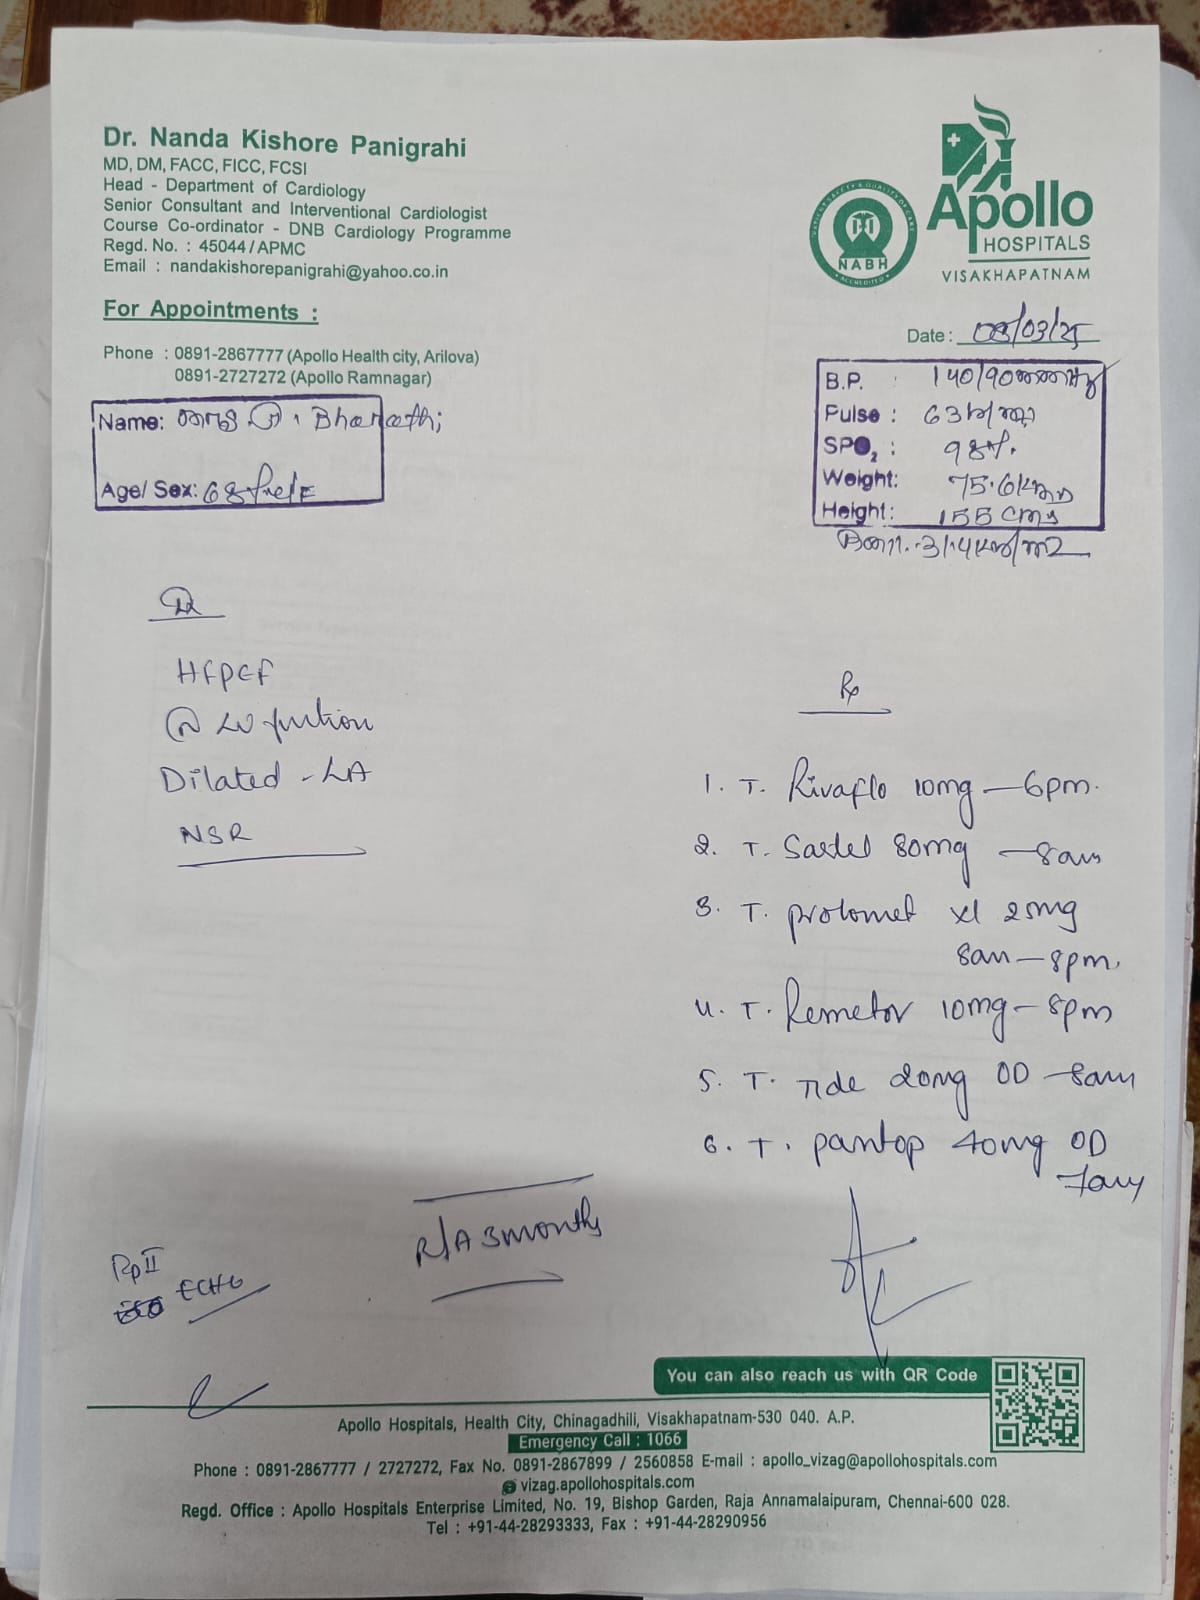 Dr. Nanda Kishore Panigrahi
MD, DM, FACC, FICC, FCSI
Head - Department of Cardiology
Senior Consultant and Interventional Cardiologist
Course Co-ordinator - DNB Cardiology Programme
Regd. No. : 45044/APMC
Email : nandakishorepanigrahi@yahoo.co.in
For Appointments :
Phone : 0891-2867777 (Apollo Health city, Arilova)
0891-2727272 (Apollo Ramnagar)
NABH
ACCREDITED
Apollo
HOSPITALS
VISAKHAPATNAM
Date: 08/03/25
Name: Bharathi
Age/ Sex: 68
B.P. : 140/90
Pulse : 63
SPO2 : 98%
Weight: 75.6
Height: 155 cms
HFPEF
LV function
Dilated - LA
NSR
Rp
1. T. Rivaflo 10mg — 6pm.
2. T. Sartel 80mg — 8am
3. T. prolomet xl 25mg
8am — 8pm.
4. T. Remetor 10mg — 8pm
5. T. Tide 20mg OD — 8am
6. T. pantop 40mg OD
7am
R/A 3months
ECHO
You can also reach us with QR Code
Apollo Hospitals, Health City, Chinagadhili, Visakhapatnam-530 040. A.P.
Emergency Call : 1066
Phone : 0891-2867777 / 2727272, Fax No. 0891-2867899 / 2560858 E-mail : apollo_vizag@apollohospitals.com
vizag.apollohospitals.com
Regd. Office : Apollo Hospitals Enterprise Limited, No. 19, Bishop Garden, Raja Annamalaipuram, Chennai-600 028.
Tel : +91-44-28293333, Fax : +91-44-28290956